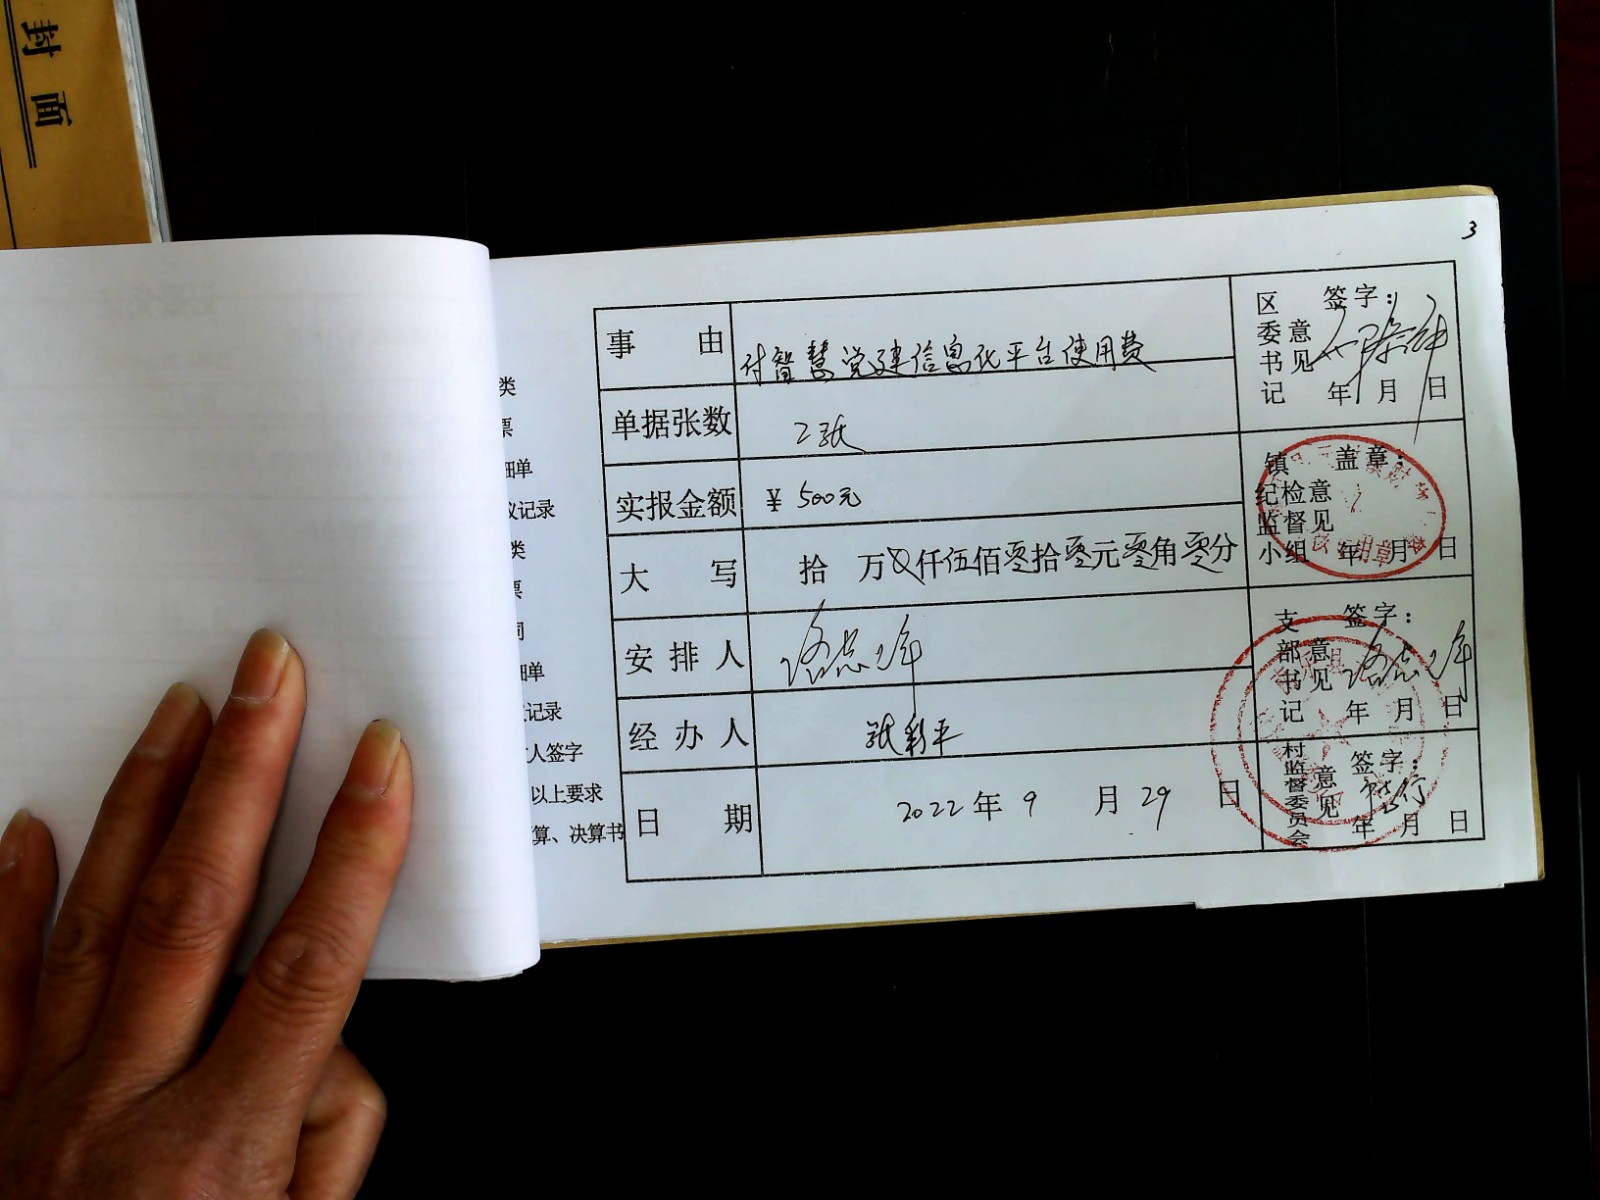 封面
3
类
票
细单
议记录
类
票
同
细单
议记录
人签字
以上要求
算、决算书
事 由 付智慧党建信息化平台使用费
单据张数 2张
实报金额 ¥ 500元
大 写 拾 万 仟伍佰零拾零元零角零分
安 排 人
经 办 人 张彩平
日 期 2022年9月29日
区委书记意见 签字:
年 月 日
镇纪检监督小组意见 盖章:
年 月 日
支部书记意见 签字:
年 月 日
村监督委员会意见 签字:
年 月 日